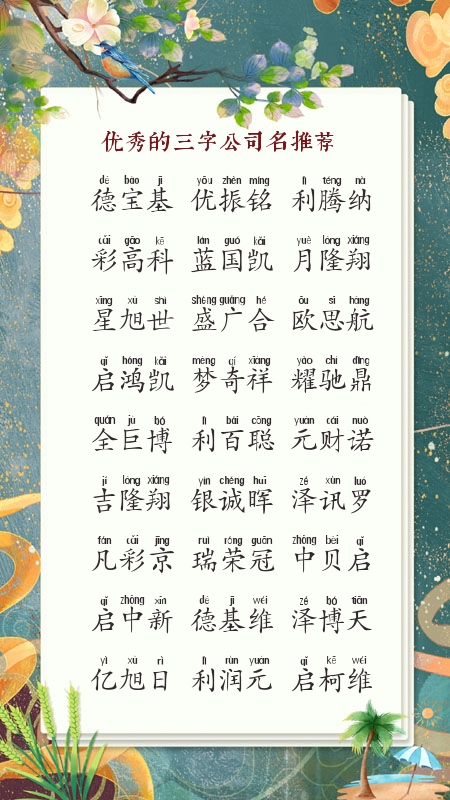 优秀的三字公司名推荐
dé bǎo jī yōu zhèn míng lì téng nà
德宝基 优振铭 利腾纳
cǎi gāo kē lán guó kǎi yuè lóng xiáng
彩高科 蓝国凯 月隆翔
xīng xù shì shèng guǎng hé ōu sī háng
星旭世 盛广合 欧思航
qǐ hóng kǎi mèng qí xiáng yào chí dǐng
启鸿凯 梦奇祥 耀驰鼎
quán jù bó lì bǎi cōng yuán cái nuò
全巨博 利百聪 元财诺
jí lóng xiáng yín chéng huī zé xùn luó
吉隆翔 银诚晖 泽讯罗
fán cǎi jīng ruì róng guān zhōng bèi qǐ
凡彩京 瑞荣冠 中贝启
qǐ zhōng xīn dé jī wéi zé bó tiān
启中新 德基维 泽博天
yì xù rì lì rùn yuán qǐ kē wéi
亿旭日 利润元 启柯维